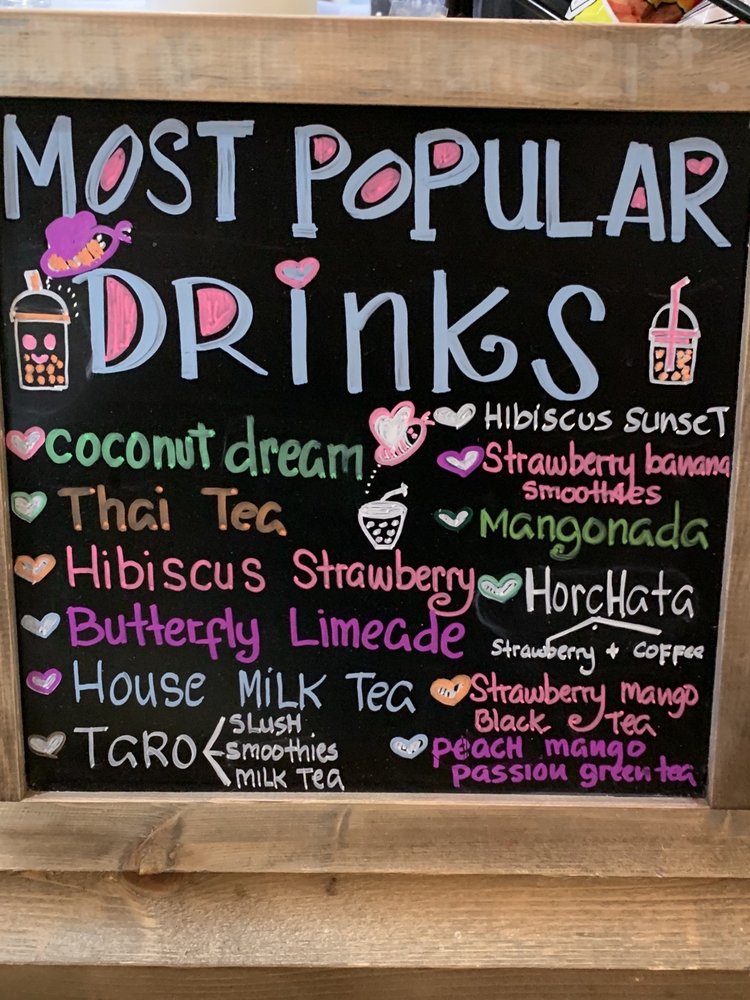 21st.
MOST POPULAR
DRiNKS
coconut dream
Thai Tea
Hibiscus Strawberry
Butterfly Limeade
House MiLK Tea
TaRO
SLUSH
smoothies
MiLK Tea
HIBISCUS SUNSET
Strawberry banana
smoothies
Mangonada
HorcHata
Strawberry + COFFEE
Strawberry mango
Black Tea
peach mango
passion green tea